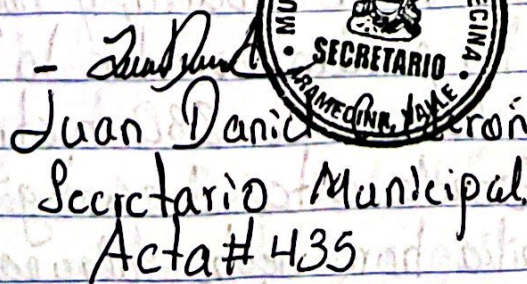 SECRETARIO
ARAMECINA, VALLE
Juan Daniel
Secretario Municipal.
Acta # 435